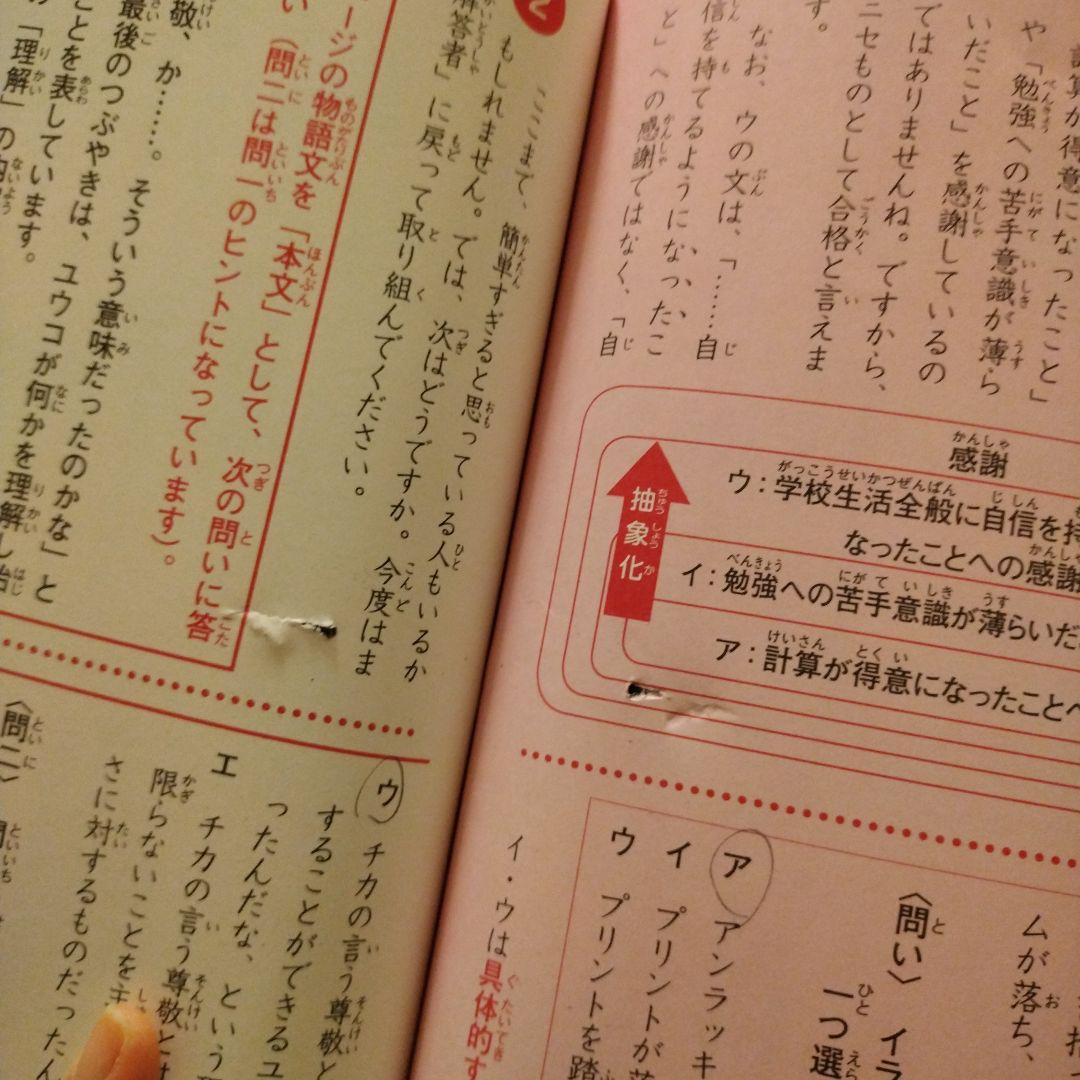 計算が得意になったこと」
や「勉強への苦手意識が薄ら
いだこと」を感謝しているの
ではありませんね。ですから、
ニセものとして合格と言えま
す。
なお、ウの文は、「……自
信を持てるようになったこ
と」への感謝ではなく、「自
感謝
ウ：学校生活全般に自信を持
なったことへの感謝
イ：勉強への苦手意識が薄らいだ
ア：計算が得意になったことへ
抽象化
ムが落ち、
〈問い〉イラ
一つ選
ア アンラッキ
イ プリントが落
ウ プリントを踏
イ・ウは具体的す
ここまで、簡単すぎると思っている人もいるか
もしれません。では、次はどうですか。今度はま
解答者」に戻って取り組んでください。
ージの物語文を「本文」として、次の問いに答
い（問二は問一のヒントになっています）。
敬、か……。そういう意味だったのかな」と
最後のつぶやきは、ユウコが何かを理解し始
ことを表しています。
「理解」の内
ウ チカの言う尊敬と
することができるユ
ったんだな、という
エ チカの言う尊敬とは
限らないことを
さに対するものだったん
〈問二〉